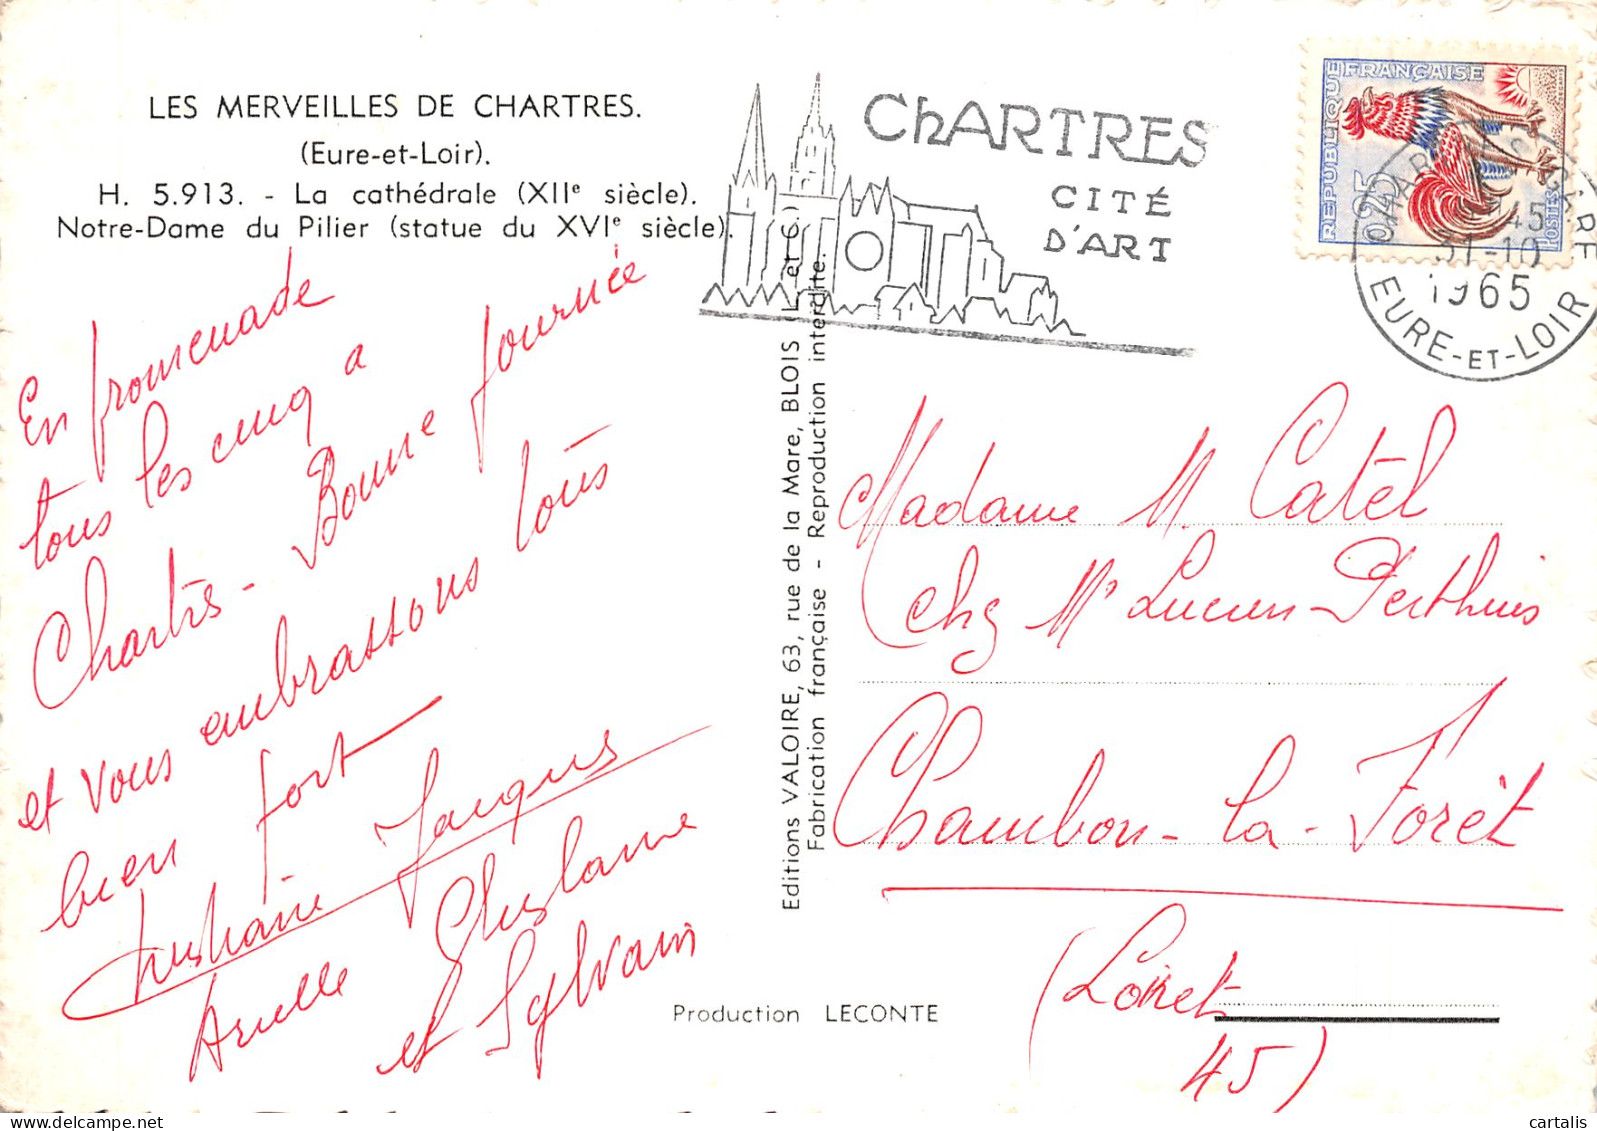 LES MERVEILLES DE CHARTRES.
(Eure-et-Loir).
H. 5.913. - La cathédrale (XIIe siècle).
Notre-Dame du Pilier (statue du XVIe siècle).
En promenade
tous les cinq a
Chartres - Bonne journée
et vous embrassons tous
bien fort
Christiane Jacques
Arielle Ghislaine
et Sylvain
Editions VALOIRE, 63, rue de la Mare, BLOIS (L. et C.)
Fabrication française - Reproduction interdite.
Production LECONTE
ChARTRES
CITÉ
D'ART
REPUBLIQUE FRANÇAISE
0,25
POSTES
CHARTRES GARE
45
31-10
1965
EURE-ET-LOIR
Madame M. Catel
chez Mr Lucien Perthuis
Chambon-la-Forêt
(Loiret
45)
cartalis